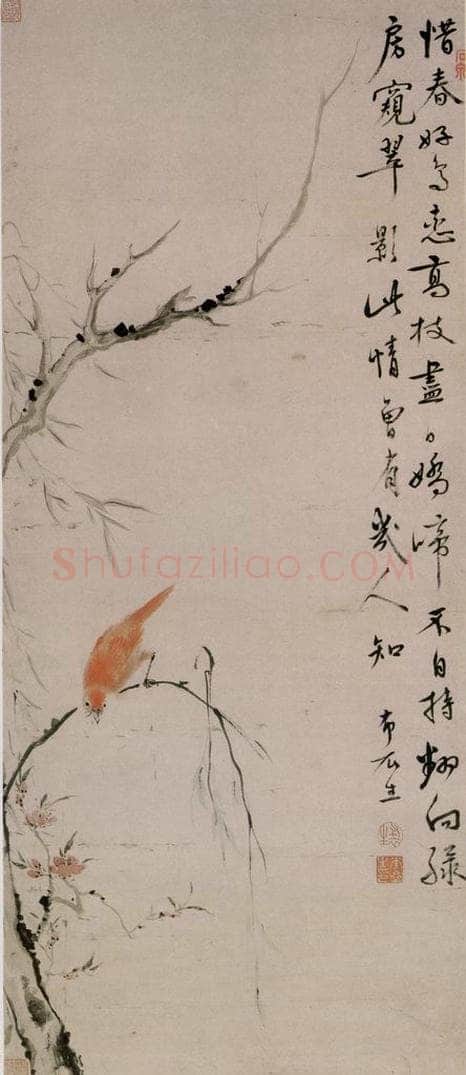 惜春好鳥恋高枝盡日嬌啼不自持翻向緑
房窺翠影此情曾有幾人知
布衣生
Shufaziliao.COM